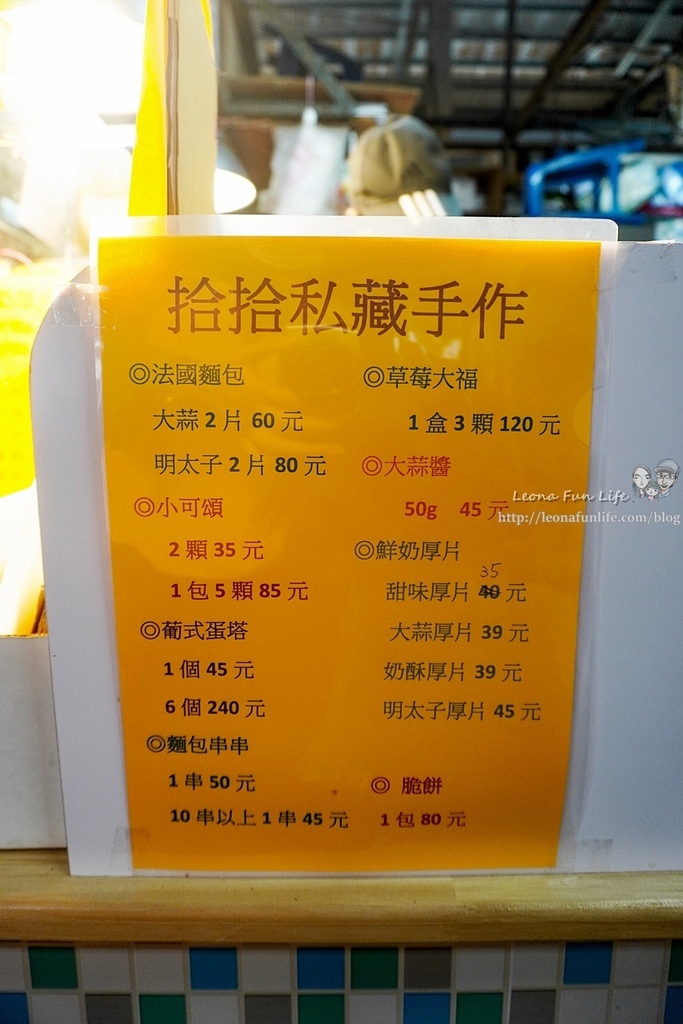 拾拾私藏手作
◎法國麵包
大蒜 2 片 60 元
明太子 2 片 80 元
◎小可頌
2 顆 35 元
1 包 5 顆 85 元
◎葡式蛋塔
1 個 45 元
6 個 240 元
◎麵包串串
1 串 50 元
10 串以上 1 串 45 元
◎草莓大福
1 盒 3 顆 120 元
◎大蒜醬
50g 45 元
◎鮮奶厚片
35
甜味厚片 40 元
大蒜厚片 39 元
奶酥厚片 39 元
明太子厚片 45 元
◎ 脆餅
1 包 80 元
Leona Fun Life
http://leonafunlife.com/blog